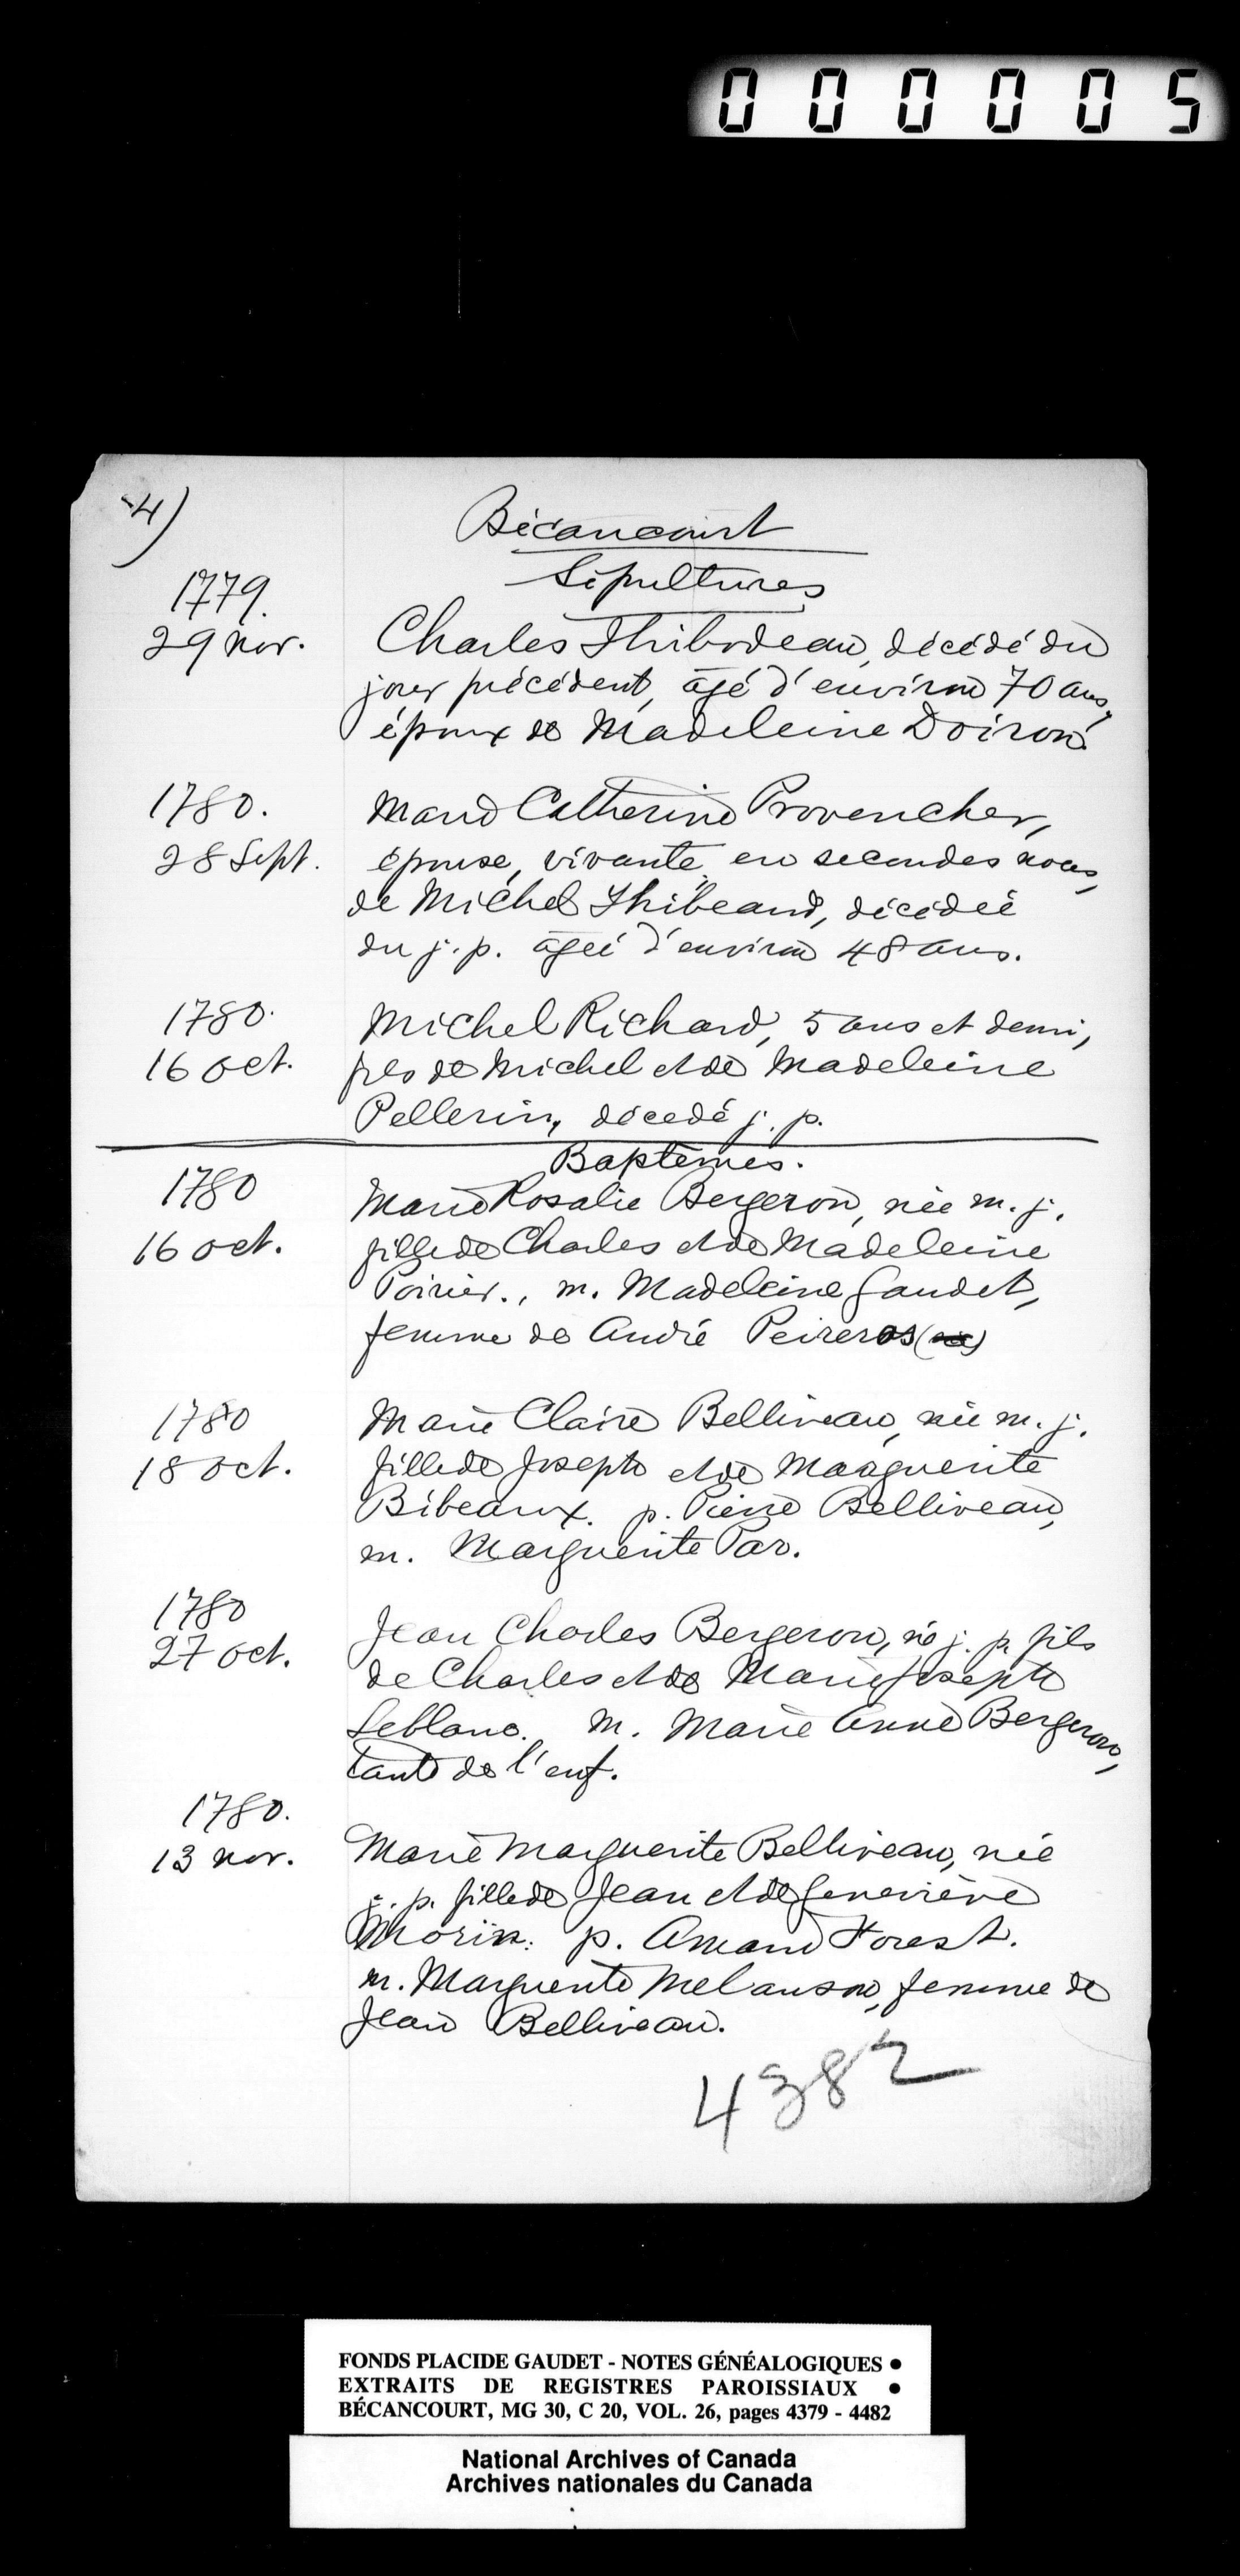 000005
4)
Bécancourt
Sépultures
1779.
29 nov. Charles Thibodeau, décédé du
jour précédent, âgé d'environ 70 ans,
époux de Madeleine Doiron.
1780. Marie Catherine Provencher,
28 Sept. épouse, vivante, en secondes noces,
de Michel Thibeau, décédée
du j. p. âgée d'environ 48 ans.
1780. Michel Richard, 5 ans et demi,
16 oct. fils de Michel et de Madeleine
Pellerin, décedé j. p.
Baptêmes.
1780 Marie Rosalie Bergeron, née m. j.
16 oct. fille de Charles et de Madeleine
Poirier., m. Madeleine Gaudet,
femme de André Peireros
1780 Marie Claire Belliveau, née m. j.
18 oct. fille de Joseph et de Marguerite
Bibeaux. p. Pierre Belliveau,
m. Marguerite Par.
1780
27 oct. Jean Charles Bergeron, né j. p. fils
de Charles et de Marie Joseph
Leblanc. m. Marie Anne Bergeron,
tante de l'enf.
1780.
13 nov. Marie Marguerite Belliveau, née
j. p. fille de Jean et de Geneviève
Morin. p. Amand Forest.
m. Marguerite Melanson, femme de
Jean Belliveau.
4382
FONDS PLACIDE GAUDET - NOTES GÉNÉALOGIQUES •
EXTRAITS DE REGISTRES PAROISSIAUX •
BÉCANCOURT, MG 30, C 20, VOL. 26, pages 4379 - 4482
National Archives of Canada
Archives nationales du Canada